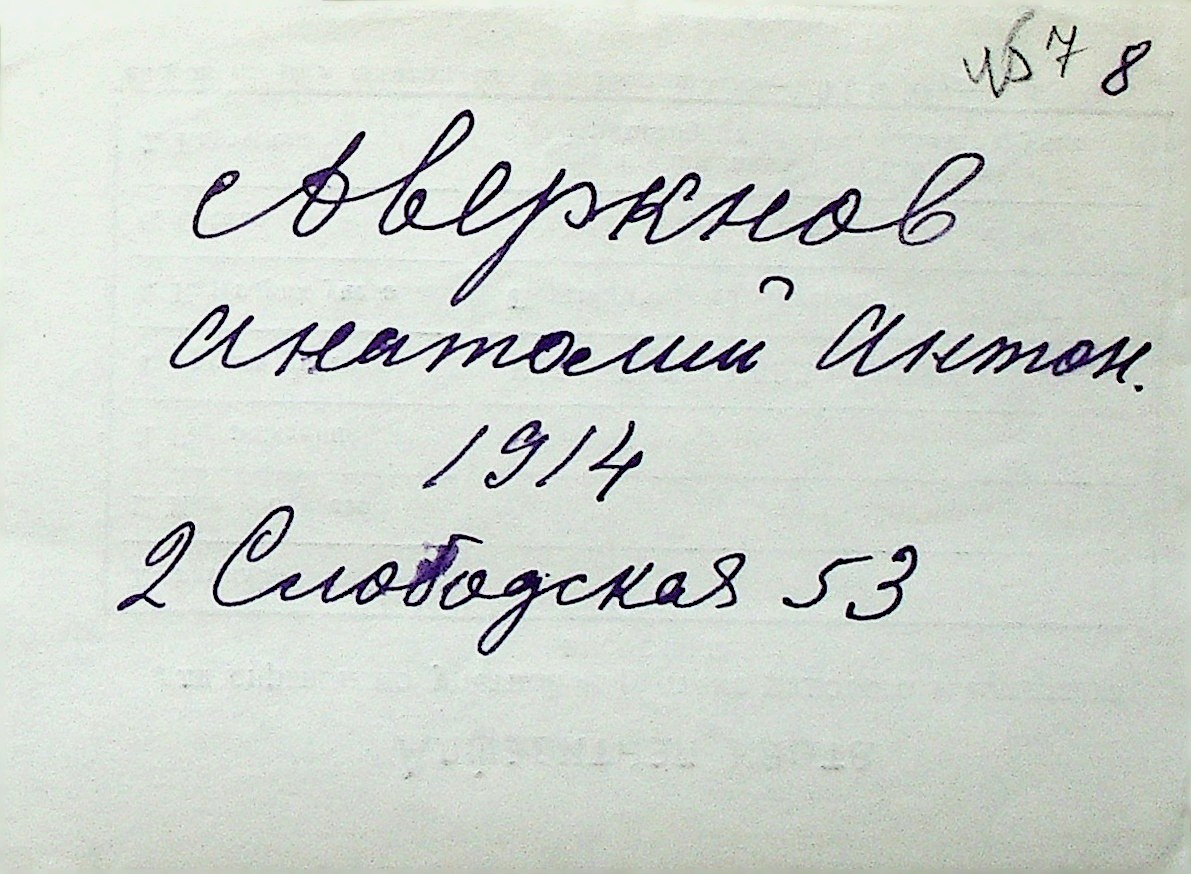 7 8
Аверкнов
Анатолий Антон.
1914
2 Слободская 53